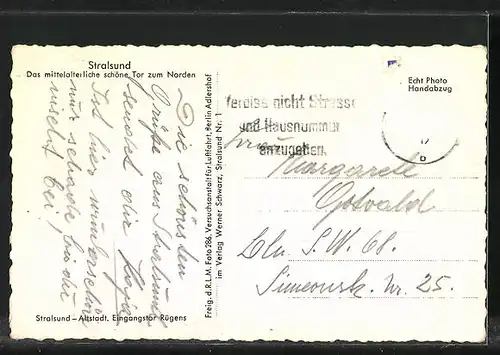 Stralsund
Das mittelalterliche schöne Tor zum Norden
Die schönsten
Grüße aus Stralsund
sendet dir
Ist hier wunderschön
nur schade bin
nicht bei!
Stralsund – Altstadt. Eingangstor Rügens
Freig. d. R. L. M. Foto 286, Versuchsanstalt für Luftfahrt, Berlin Adlershof
im Verlag Werner Schwarz, Stralsund Nr. 1
Echt Photo
Handabzug
nicht Strasse
und Hausnummer
anzugeben.
Frau
Margarete
Ostwald
Bln. S.W. 68.
Simeonstr. Nr. 25.